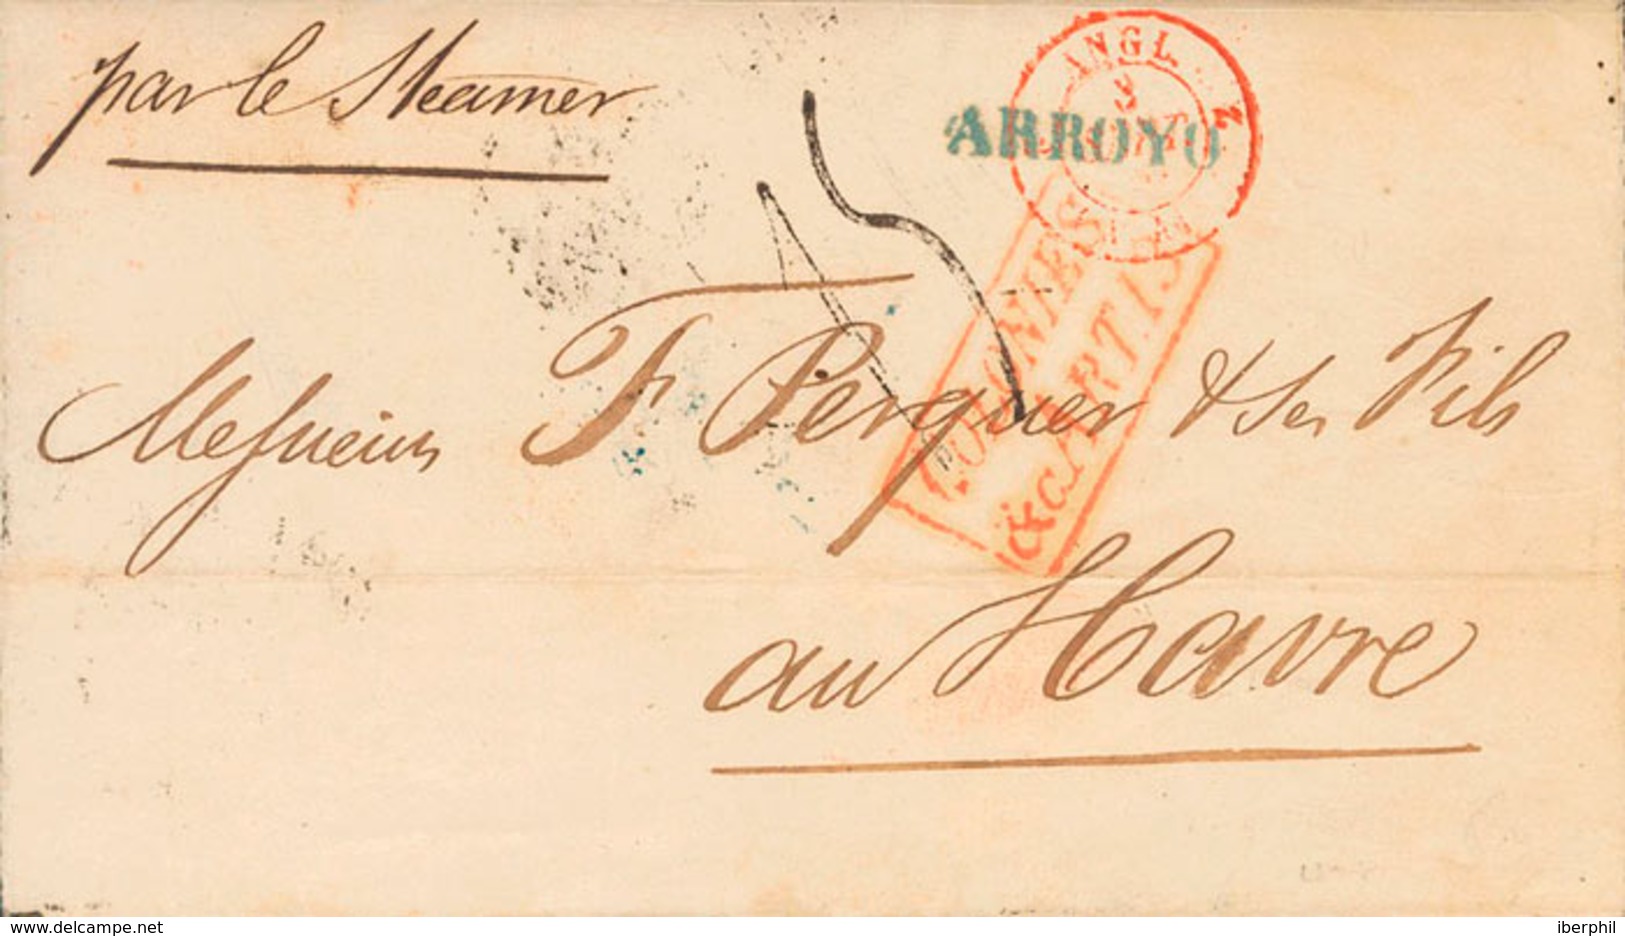 par le Steamer
ANGL.
9
ARROYO
2
COLONIES
&c. ART. 13
15
Messieurs F Perquer & ses Fils
au Havre
www.delcampe.net
iberphil